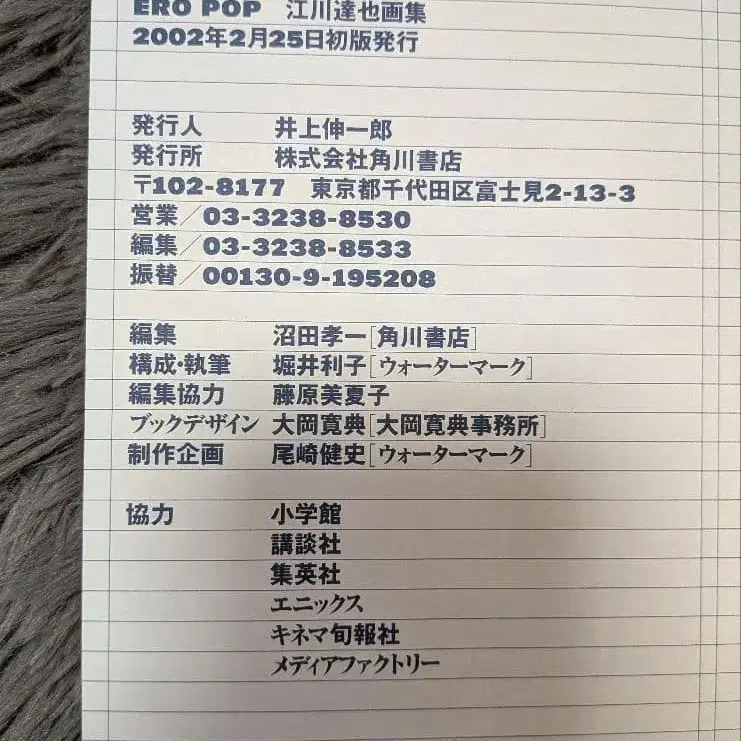 ERO POP 江川達也画集
2002年2月25日初版発行
発行人 井上伸一郎
発行所 株式会社角川書店
〒102-8177 東京都千代田区富士見2-13-3
営業／03-3238-8530
編集／03-3238-8533
振替／00130-9-195208
編集 沼田孝一[角川書店]
構成・執筆 堀井利子[ウォーターマーク]
編集協力 藤原美夏子
ブックデザイン 大岡寛典[大岡寛典事務所]
制作企画 尾崎健史[ウォーターマーク]
協力 小学館
講談社
集英社
エニックス
キネマ旬報社
メディアファクトリー